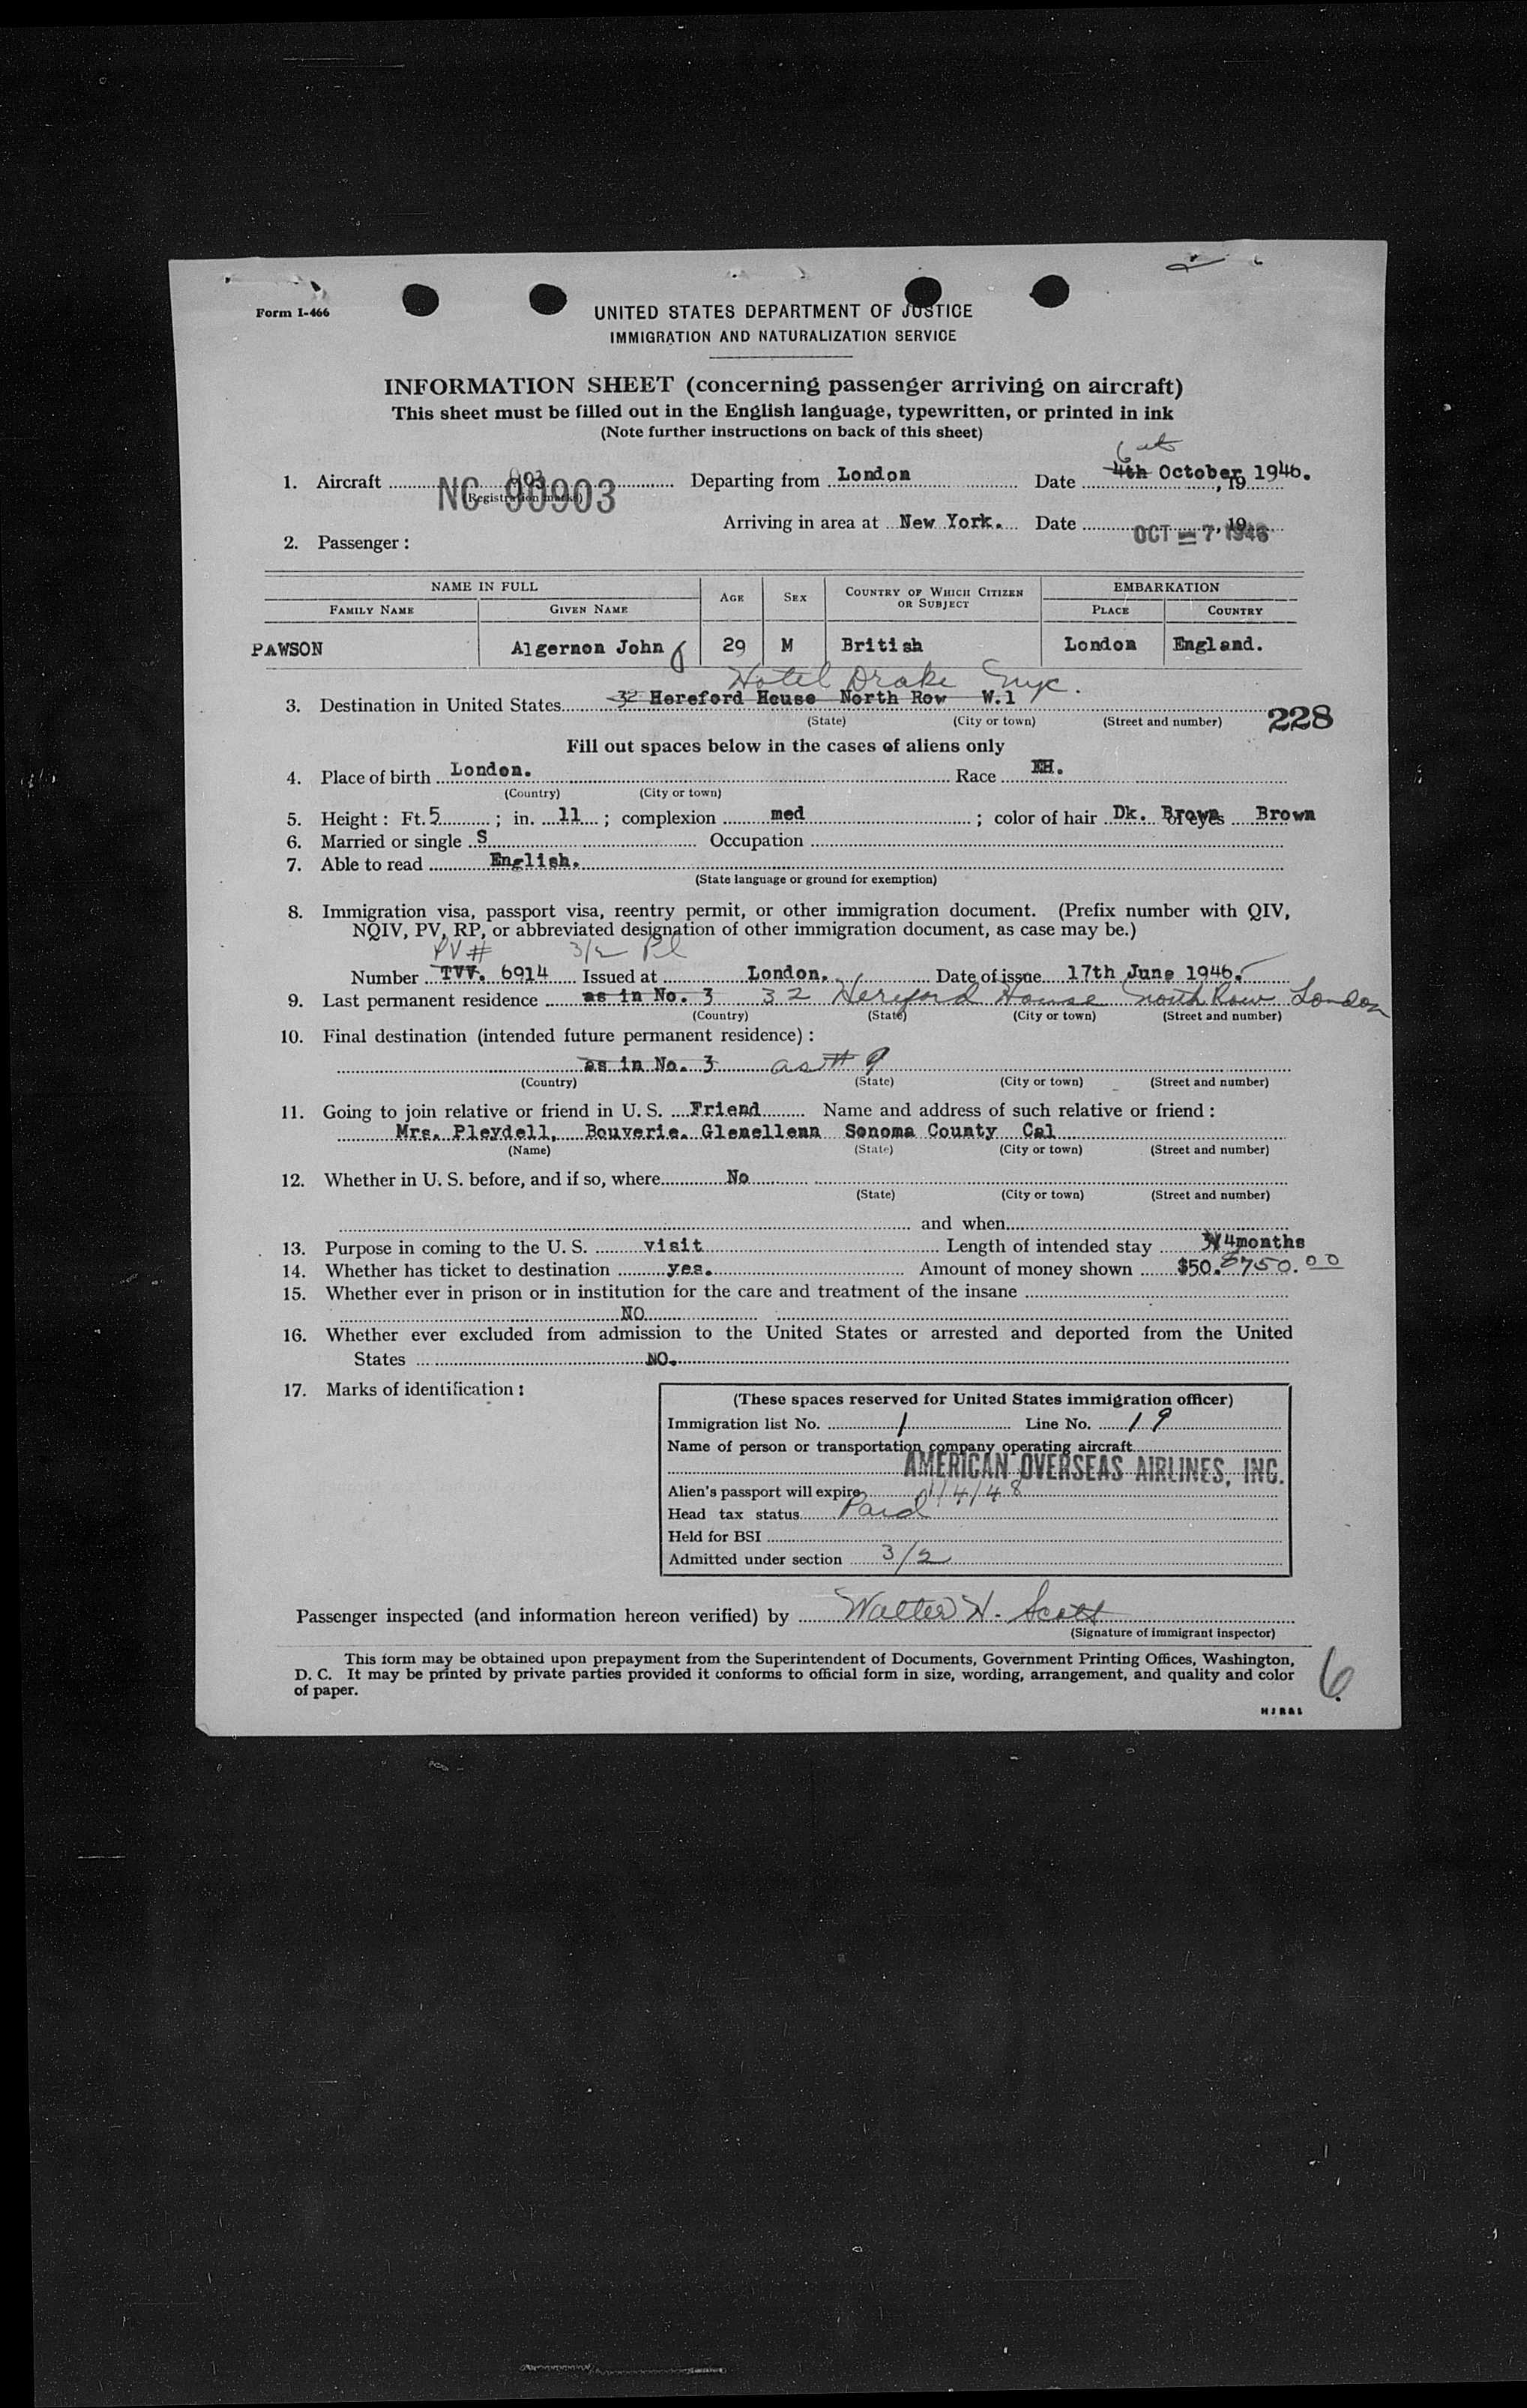 Form I-466
UNITED STATES DEPARTMENT OF JUSTICE
IMMIGRATION AND NATURALIZATION SERVICE
INFORMATION SHEET (concerning passenger arriving on aircraft)
This sheet must be filled out in the English language, typewritten, or printed in ink
(Note further instructions on back of this sheet)
1. Aircraft NC 90903 Departing from London Date 4th October, 1946.
(Registration marks)
Arriving in area at New York. Date OCT - 7 1946
2. Passenger:
NAME IN FULL AGE SEX COUNTRY OF WHICH CITIZEN OR SUBJECT EMBARKATION
FAMILY NAME GIVEN NAME PLACE COUNTRY
PAWSON Algernon John 29 M British London England.
Hotel Drake NYC.
3. Destination in United States 32 Hereford House North Row W.1
(State) (City or town) (Street and number) 228
Fill out spaces below in the cases of aliens only
4. Place of birth London. Race
(Country) (City or town)
5. Height: Ft. 5 ; in. 11 ; complexion med ; color of hair Dk. Brown of eyes Brown
6. Married or single S Occupation
7. Able to read English.
(State language or ground for exemption)
8. Immigration visa, passport visa, reentry permit, or other immigration document. (Prefix number with QIV,
NQIV, PV, RP, or abbreviated designation of other immigration document, as case may be.)
PV# 3/2
Number TVV. 6914 Issued at London. Date of issue 17th June 1946.
9. Last permanent residence as in No. 3 32 Hereford House North Row London
(Country) (State) (City or town) (Street and number)
10. Final destination (intended future permanent residence):
as in No. 3 as # 9
(Country) (State) (City or town) (Street and number)
11. Going to join relative or friend in U. S. Friend Name and address of such relative or friend:
Mrs. Pleydell, Bouverie. Glenellenn Sonoma County Cal
(Name) (State) (City or town) (Street and number)
12. Whether in U. S. before, and if so, where No
(State) (City or town) (Street and number)
and when
13. Purpose in coming to the U. S. visit Length of intended stay 3/4months
14. Whether has ticket to destination yes. Amount of money shown $50. $750.00
15. Whether ever in prison or in institution for the care and treatment of the insane
NO
16. Whether ever excluded from admission to the United States or arrested and deported from the United
States NO.
17. Marks of identification:
(These spaces reserved for United States immigration officer)
Immigration list No. 1 Line No. 19
Name of person or transportation company operating aircraft
AMERICAN OVERSEAS AIRLINES, INC.
Alien's passport will expire 1/4/48
Head tax status Paid
Held for BSI
Admitted under section 3/2
Passenger inspected (and information hereon verified) by Walter H. Scott
(Signature of immigrant inspector)
This form may be obtained upon prepayment from the Superintendent of Documents, Government Printing Offices, Washington,
D. C. It may be printed by private parties provided it conforms to official form in size, wording, arrangement, and quality and color
of paper.
6